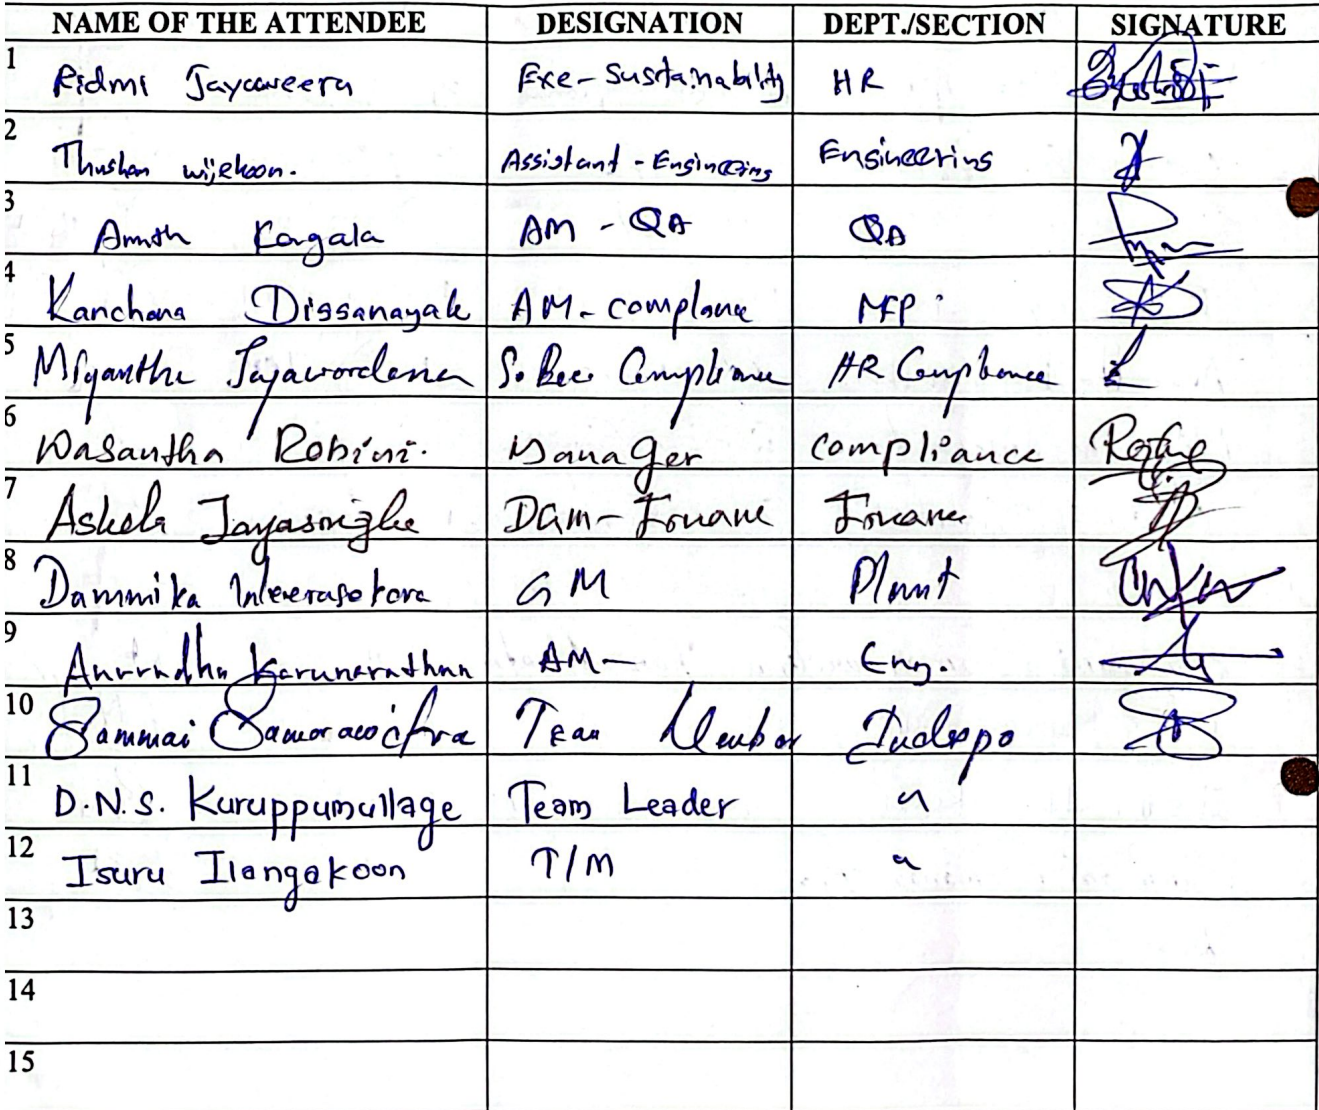 NAME OF THE ATTENDEE DESIGNATION DEPT./SECTION SIGNATURE
1 Ridmi Jayaweera Exe - Sustainability HR
2 Thushan wijekoon. Assistant - Engineering Engineering
3 Kagala AM - QA QA
4 Kanchana Dissanayak AM - complance MFP
5 Compliance HR Compliance
6 Wasantha Robini. Manager compliance
7 Jayasinghe DAM - Finane Finane
8 Dammika Weerasekara GM Plant
9 Anuradha Karunarathna AM - Eng.
10 Sammai Team Member
11 D.N.S. Kuruppumullage Team Leader "
12 Isuru Ilangakoon T/M "
13
14
15